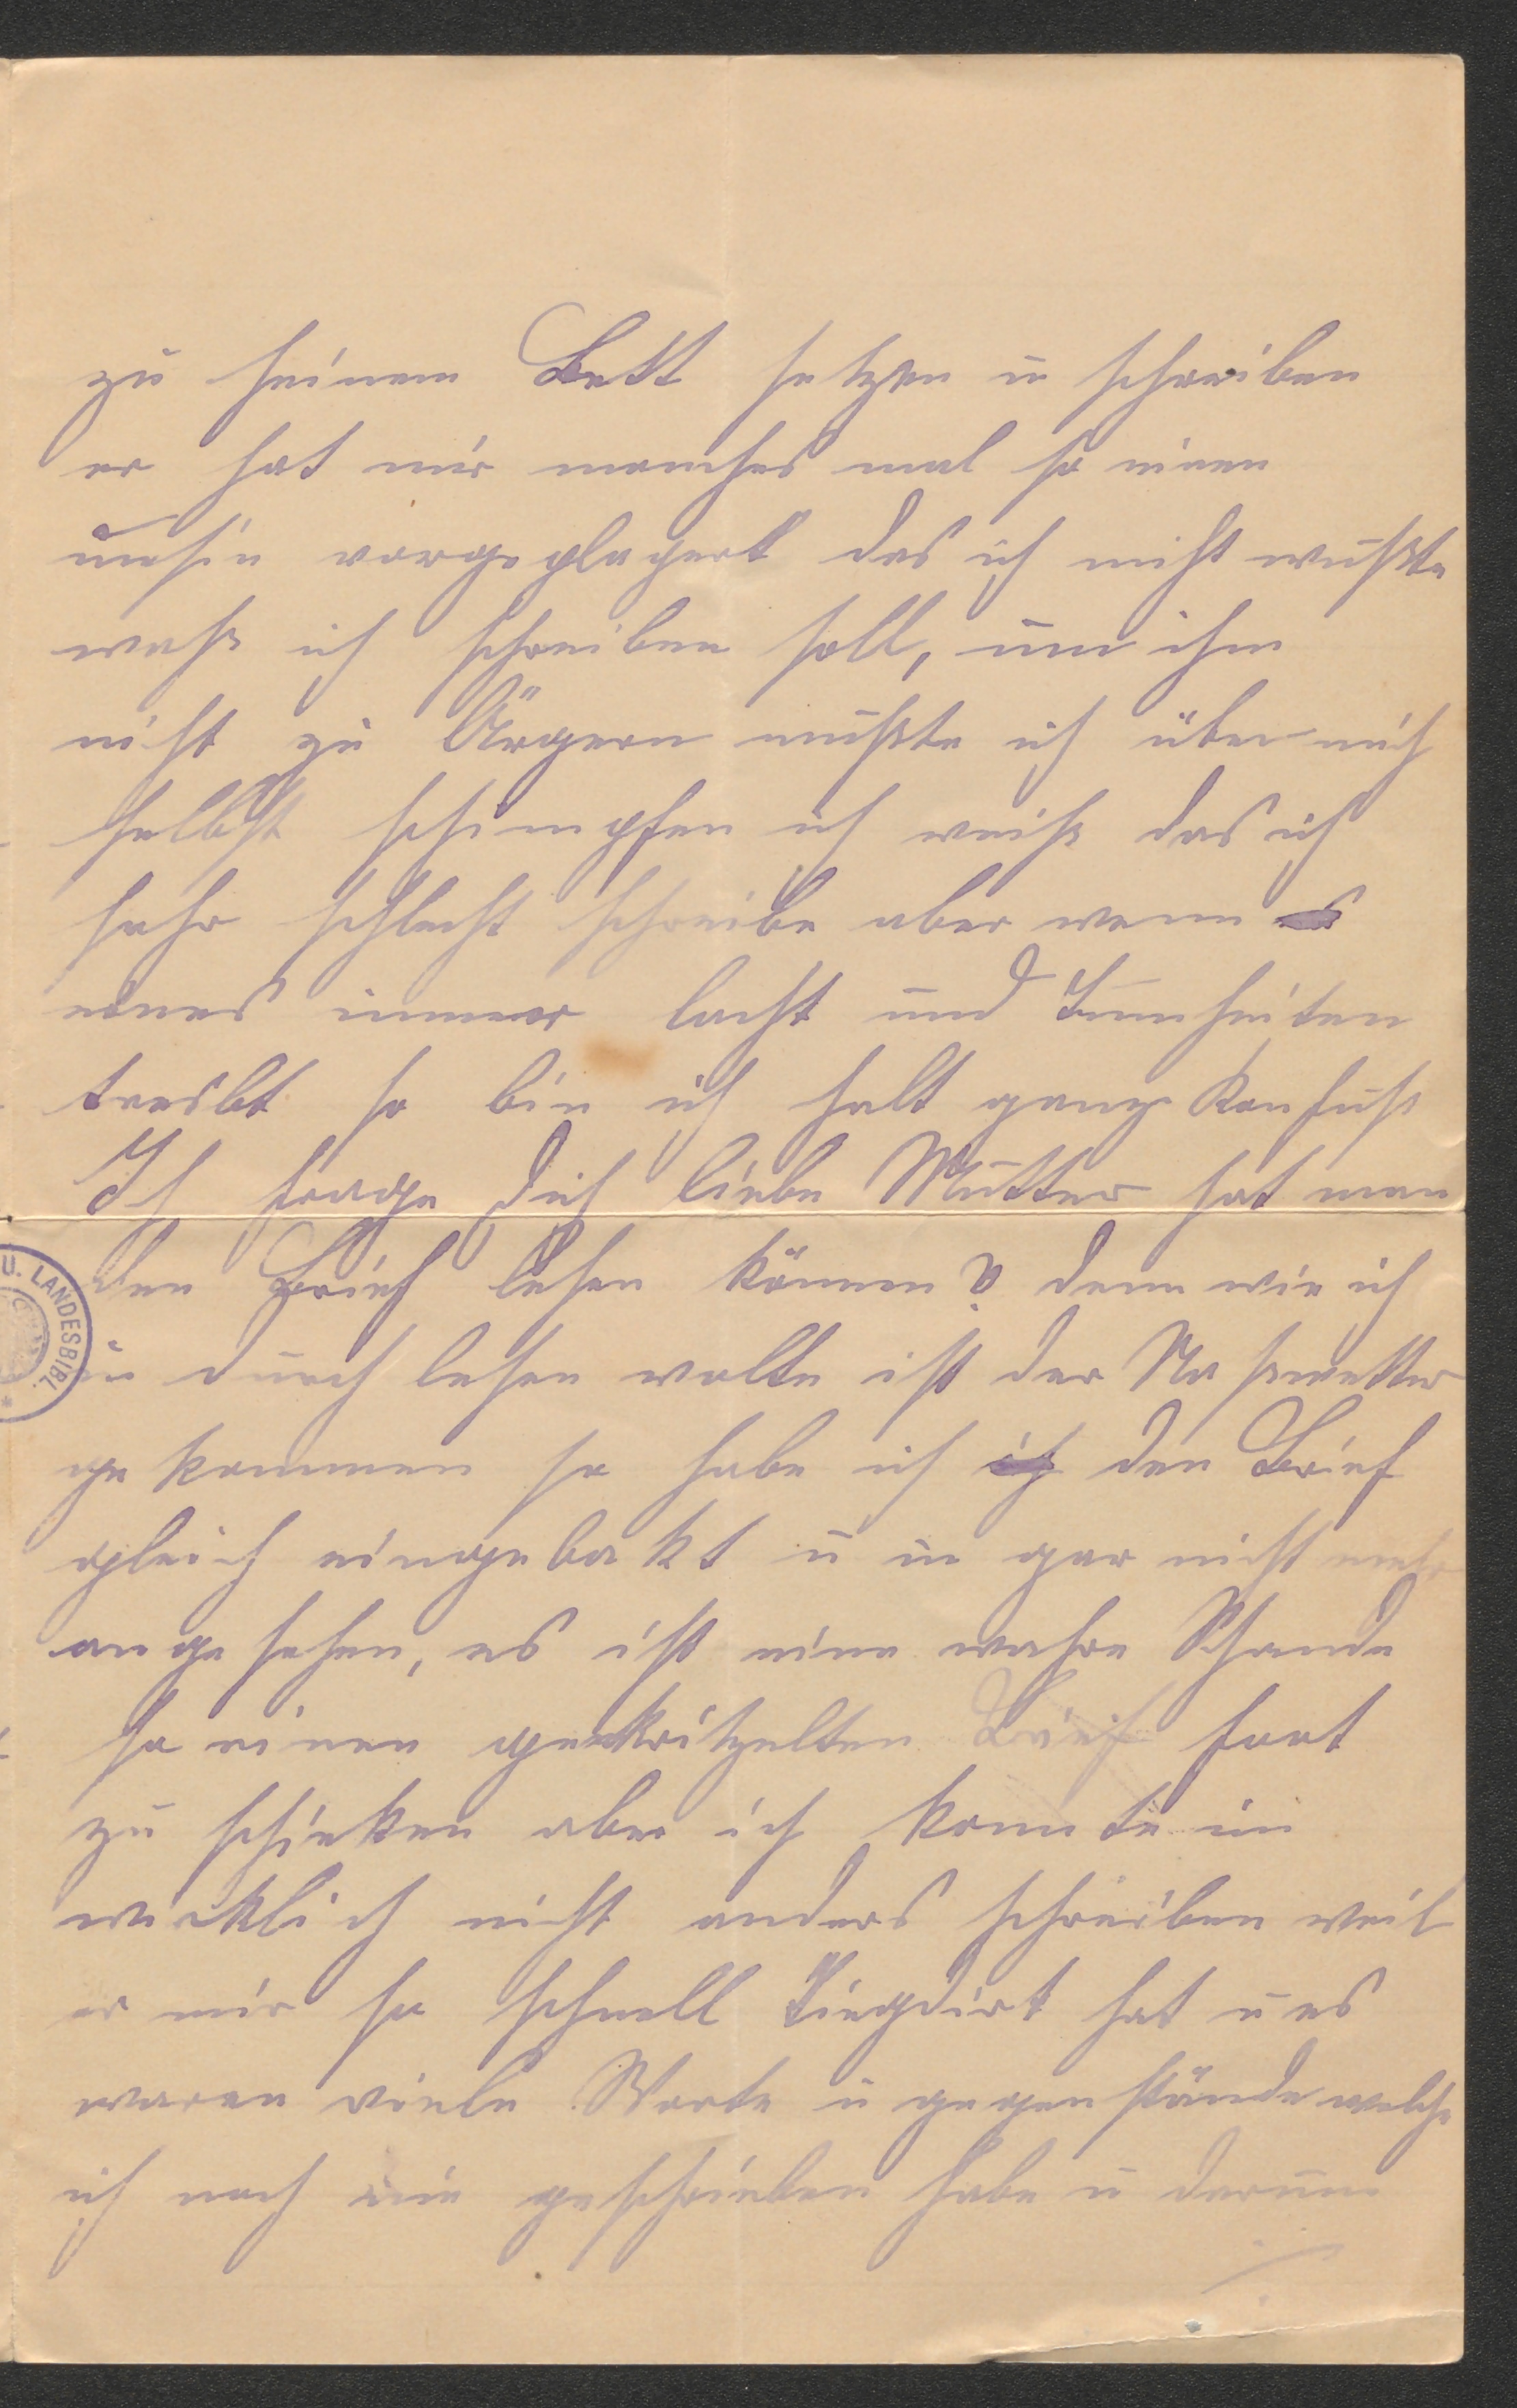 zu seinem Bett setzen u schreiben
er hat mir manches mal so einen
unsin vorgeplapert das ich nicht wußte
waß ich schreiben soll, um ihm
nicht zu Ärgern mußte ich über mich
selbst schimpfen ich weiß das ich
sehr schlecht schreibe aber wenn
eines immer lacht und Tumheiten
treibt so bin ich halt ganz Konfuß
Ich frage Dich liebe Mutter hat man
den Brief lesen können? denn wie ich
in durch lesen wolte ist der
ge kommen so habe ich den Brief
gleich eingebakt u in gar nicht mehr
angesehen, es ist eine wahre Schande
so einen gekritzelten Brief fort
zu schicken aber ich konnte in
wircklich nicht anders schreiben weil
er mir so schnell hat u es
waren viele Worte u gegenstände welche
ich noch nie geschrieben habe u darum
U. LANDESBIBL.